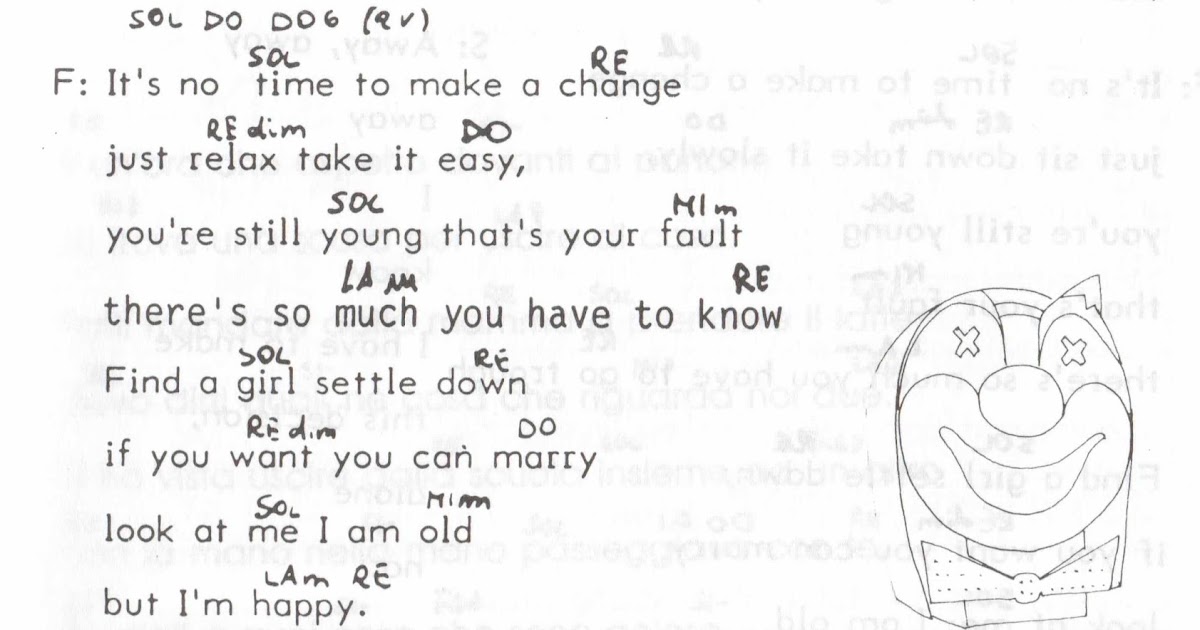 SOL DO DO6 (2V)
SOL RE
F: It's no time to make a change
RE dim DO
just relax take it easy,
SOL MIm
you're still young that's your fault
LAm RE
there's so much you have to know
SOL RE
Find a girl settle down
RE dim DO
if you want you can marry
SOL MIm
look at me I am old
LAm RE
but I'm happy.